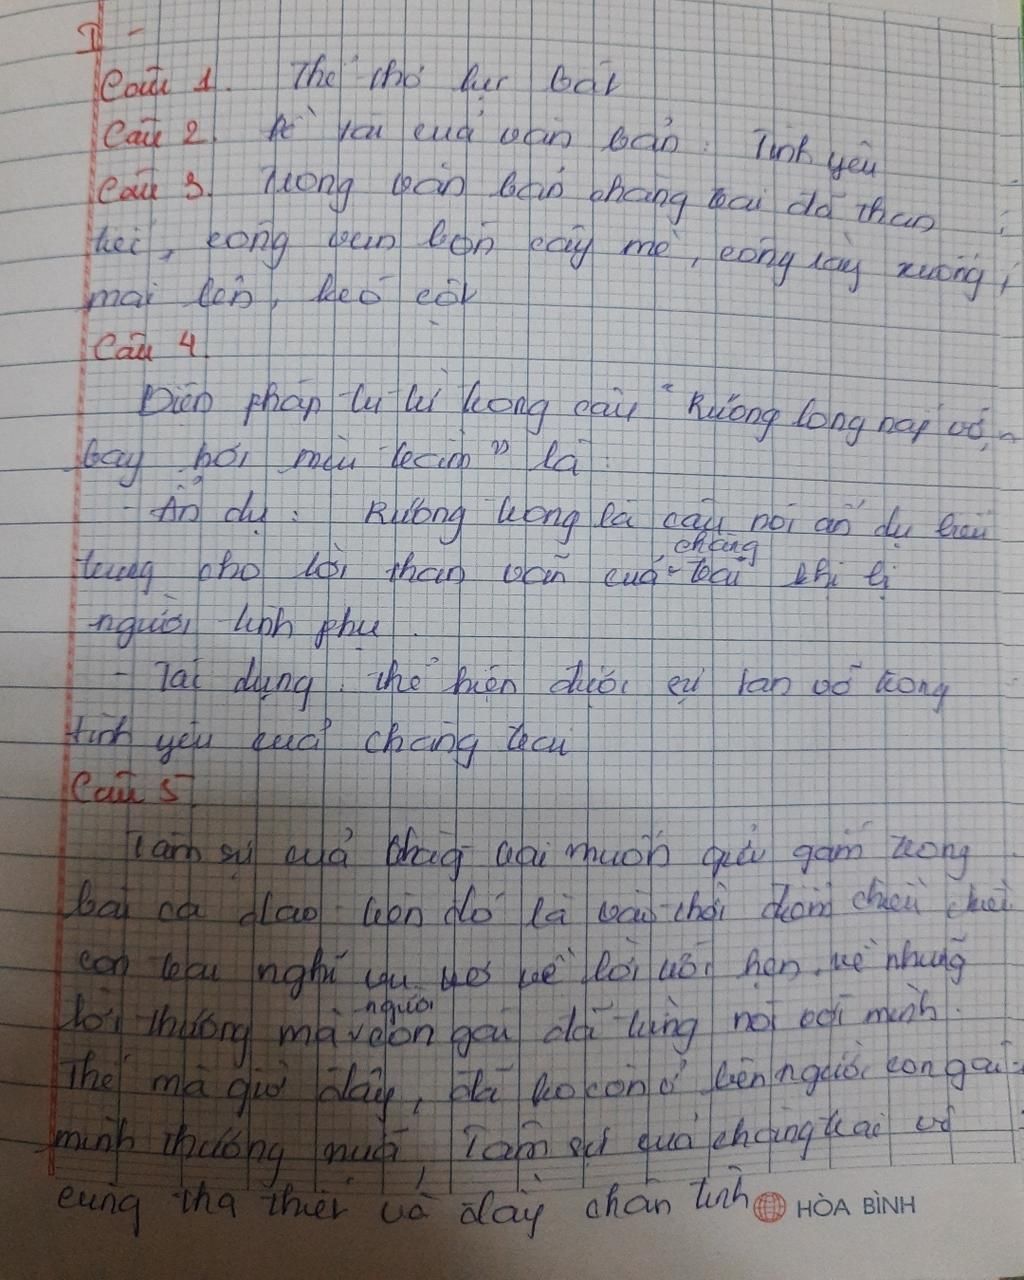 I -
Câu 1. Thể thơ lục bát
Câu 2. Đề tài của văn bản: Tình yêu
Câu 3. Trong văn bản chàng trai đã than
tiếc, công vun bón cây mè, công xây xuống,
mai lên, kéo cột
Câu 4.
Biện pháp tu từ trong câu "Ruộng long nạp vỡ,
bay hơi mùi trầm" là:
- Ẩn dụ: Rương trong là câu nói ẩn dụ biểu
trưng cho lời than vãn của chàng trai khi bị
người tình phụ.
- Tác dụng: thể hiện được sự tan vỡ trong
tình yêu của chàng trai
Câu 5
Tâm sự của chàng trai muốn gửi gắm trong
bài ca dao trên đó là
con trai nghĩ về lời hẹn, về những
lời thương mà người con gái đã từng nói với mình.
Thế mà giờ đây, đã ko còn ở bên người con gái
mình thương nữa, Tâm sự của chàng trai vô
cùng tha thiết và đầy chân tình
HÒA BÌNH